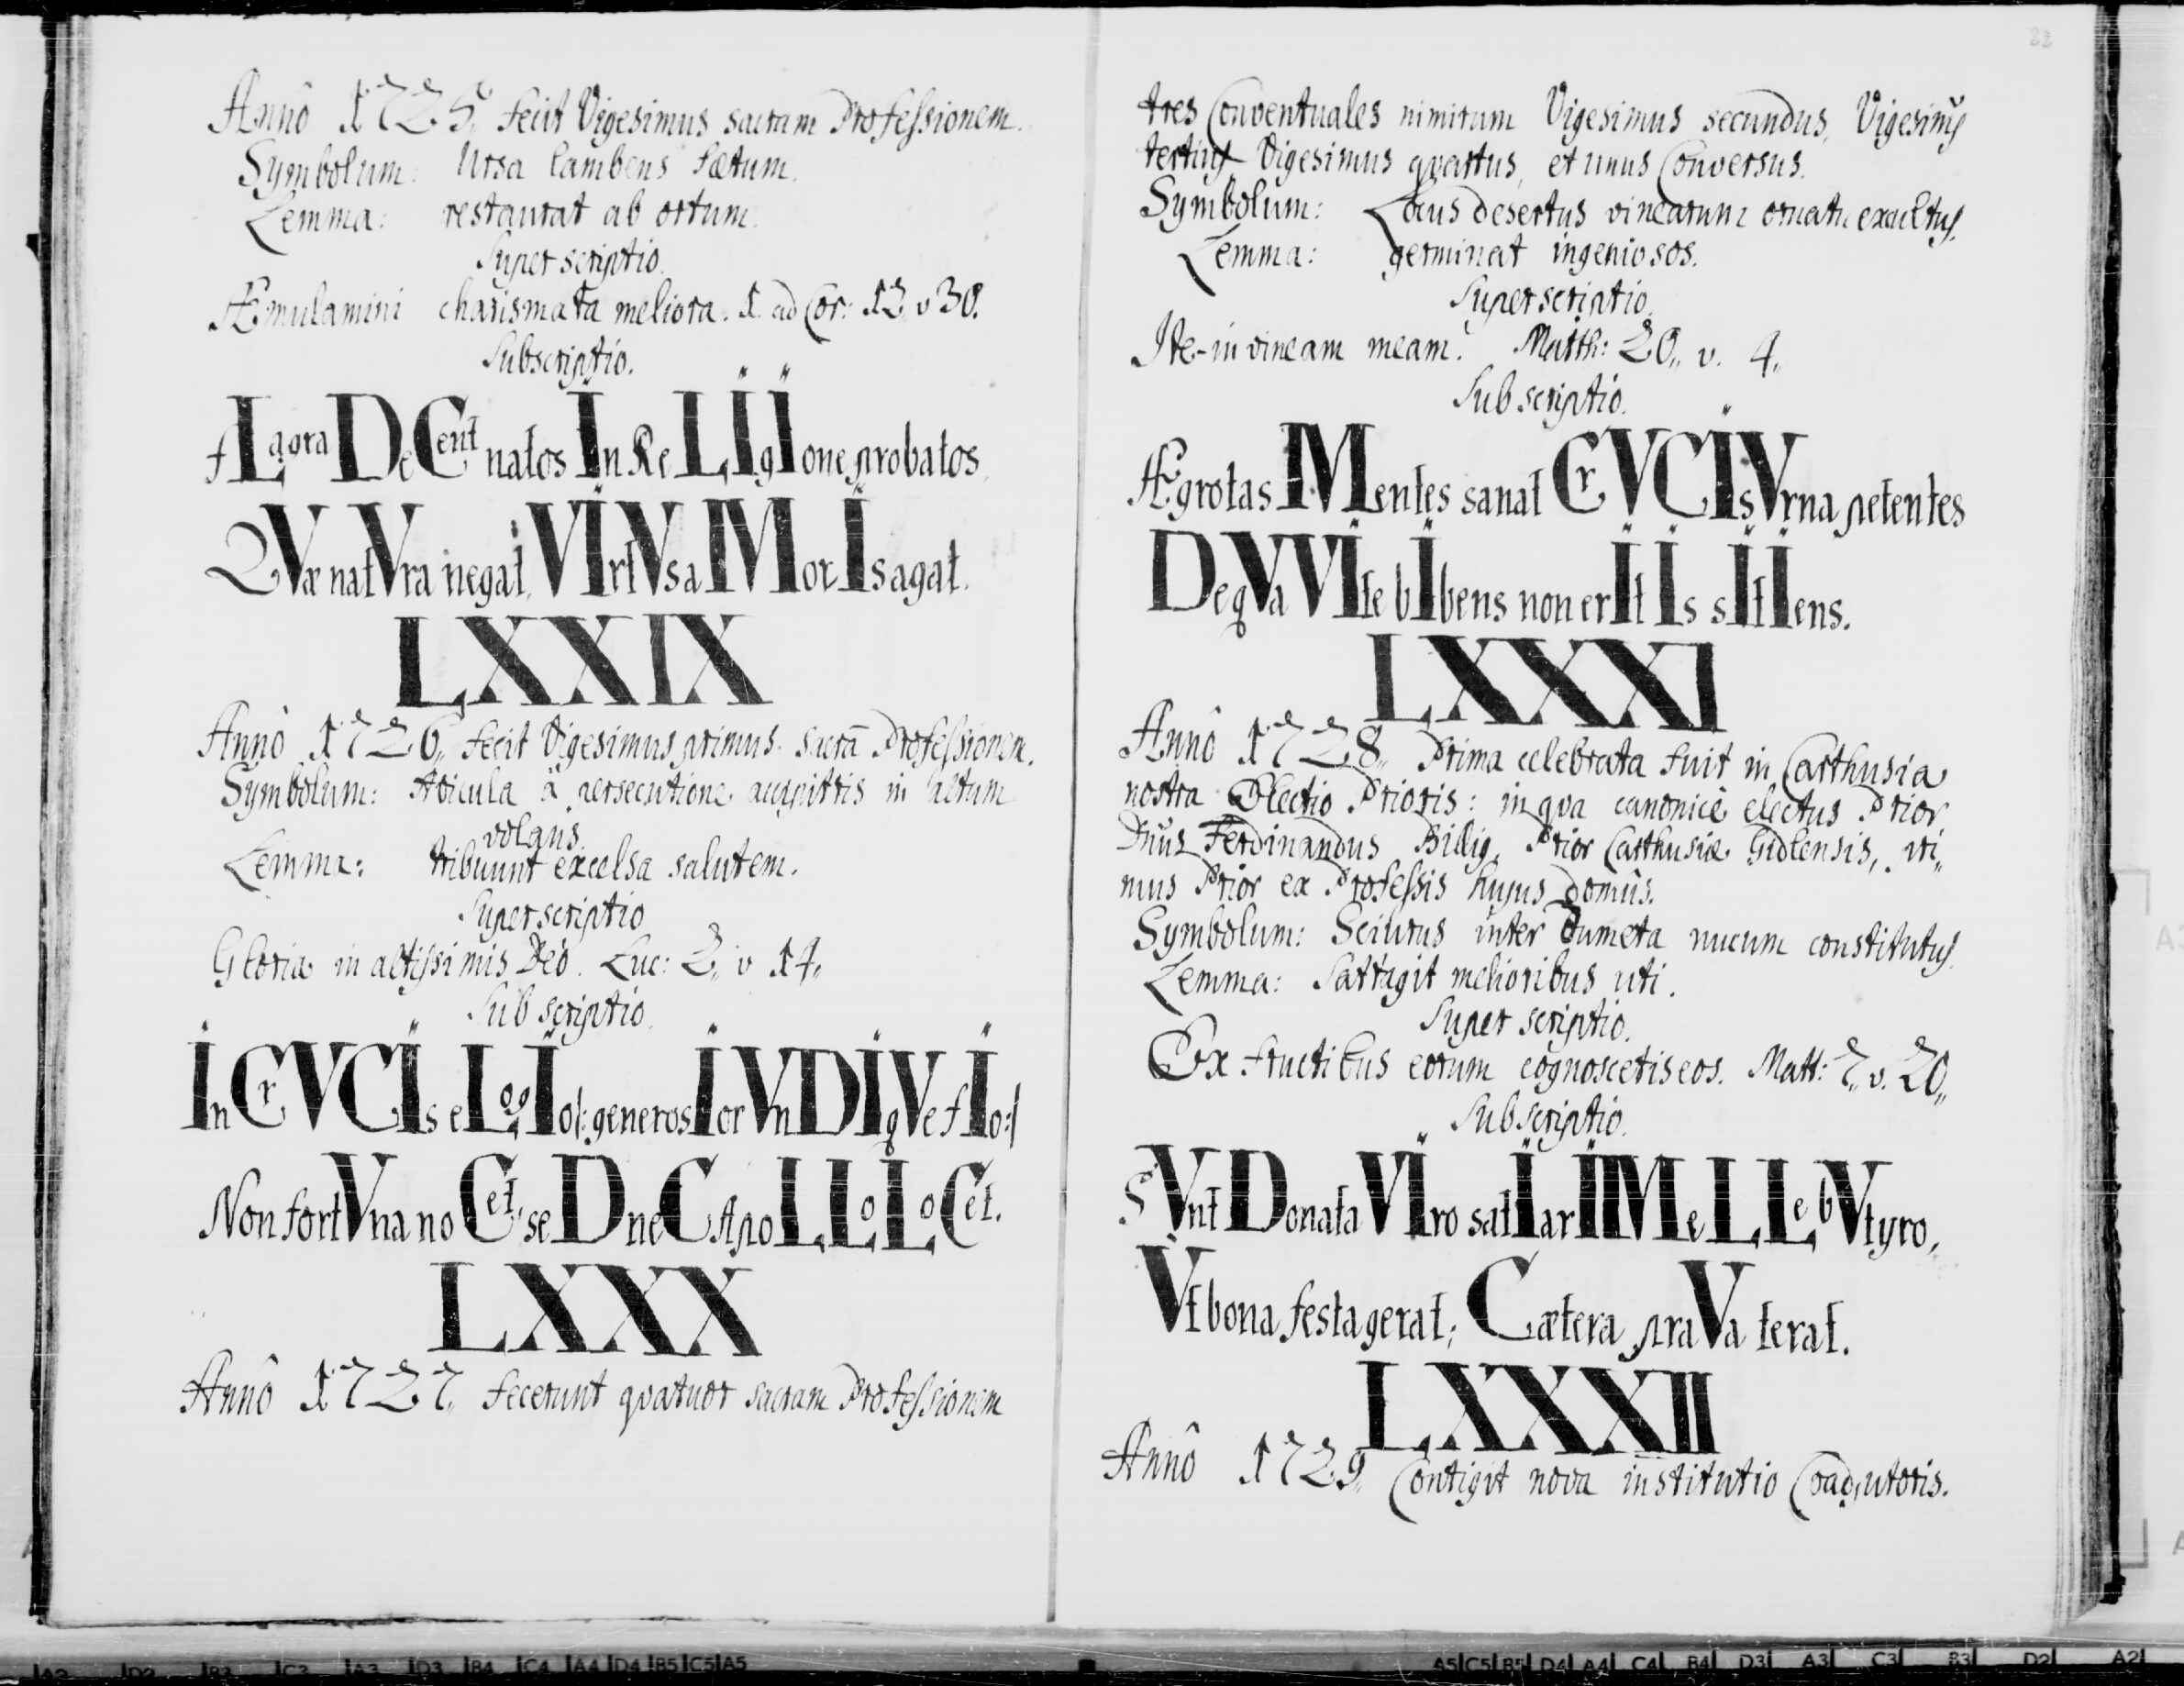 Annô 1725,, fecit Vigesimus sacram Professionem.
Symbolum: Ursa lambens fœtum.
Lemma: restaurat ab ortum.
Superscriptio.
Æmulamini charismata meliora. 1. ad Cor: 12 v 30.
Subscriptio.
fLagra DeCent natos In ReLIgIone probatos,
QVæ natVra negat, VIrtVs aMorIs agat.
LXXIX
Annô 1726,, fecit Vigesimus primus sacrã Professionem.
Symbolum: Avicula à persecutione accipitris in altum
volans.
Lemma: tribuunt excelsa salutem.
Superscriptio
Gloria in altissimis Deo. Luc: 2,, v 14,,
Subscriptio.
In CrVCIs eLogIo: generosIor VnDIqVe fIo:
Non fortVna noCet, seD neC ApoLLo LoCet.
LXXX
Annô 1727,, fecerunt quatuor sacram Professionem
22
tres Conventuales nimirum Vigesimus secundus, Vigesimus
tertius Vigesimus quartus, et unus Conversus.
Symbolum: Locus desertus vinearum ornatu excultus.
Lemma: germinat ingeniosos.
Superscriptio.
Ite in vineam meam. Matth: 20,, v. 4,,
Subscriptio.
Ægrotas Mentes sanat CrVCIs Vrna petentes
De qVa VIte bIbens non erIt Is sItIens.
LXXXI
Annô 1728,, Prima celebrata fuit in Carthusia
nostra Electio Prioris: in qua canonicè electus Prior
Dnus Ferdinandus Billig, Prior Carthusiæ Gidlensis, pri,,
mus Prior ex Professis hujus Domûs.
Symbolum: Sciurus inter dumeta nucum constitutus.
Lemma: Sattagit melioribus uti.
Superscriptio.
Ex fructibus eorum cognoscetis eos. Matt: 7,, v. 20,,
Subscriptio.
SVnt Donata VIro satIarI MeLLe bVtyro,
Vt bona festa gerat; Cætera praVa terat.
LXXXII
Annô 1729,, Contigit nova institutio Coadjutoris.
A2 D2 B3 C3 A3 D3 B4 C4 A4 D4 B5 C5 A5
A5 C5 B5 D4 A4 C4 B4 D3 A3 C3 B3 D2 A2